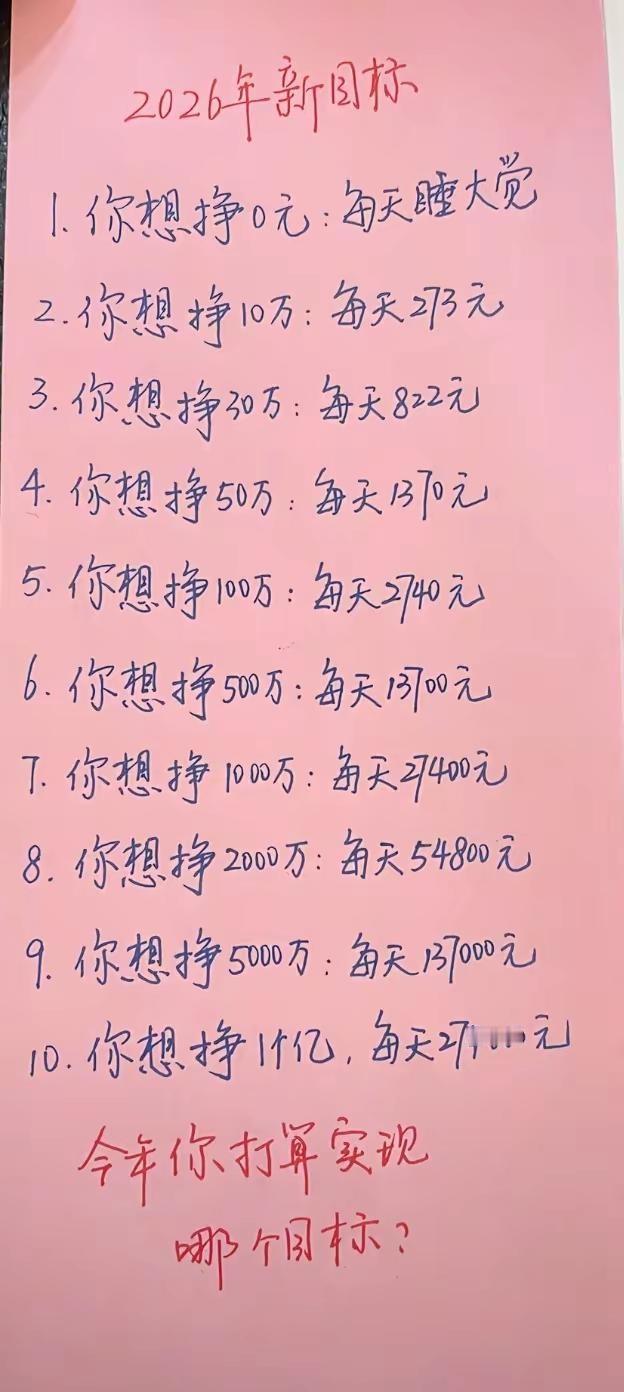 2026年新目标
1. 你想挣0元：每天睡大觉
2. 你想挣10万：每天273元
3. 你想挣30万：每天822元
4. 你想挣50万：每天1370元
5. 你想挣100万：每天2740元
6. 你想挣500万：每天13700元
7. 你想挣1000万：每天27400元
8. 你想挣2000万：每天54800元
9. 你想挣5000万：每天137000元
10. 你想挣1个亿，每天27元
今年你打算实现
哪个目标？